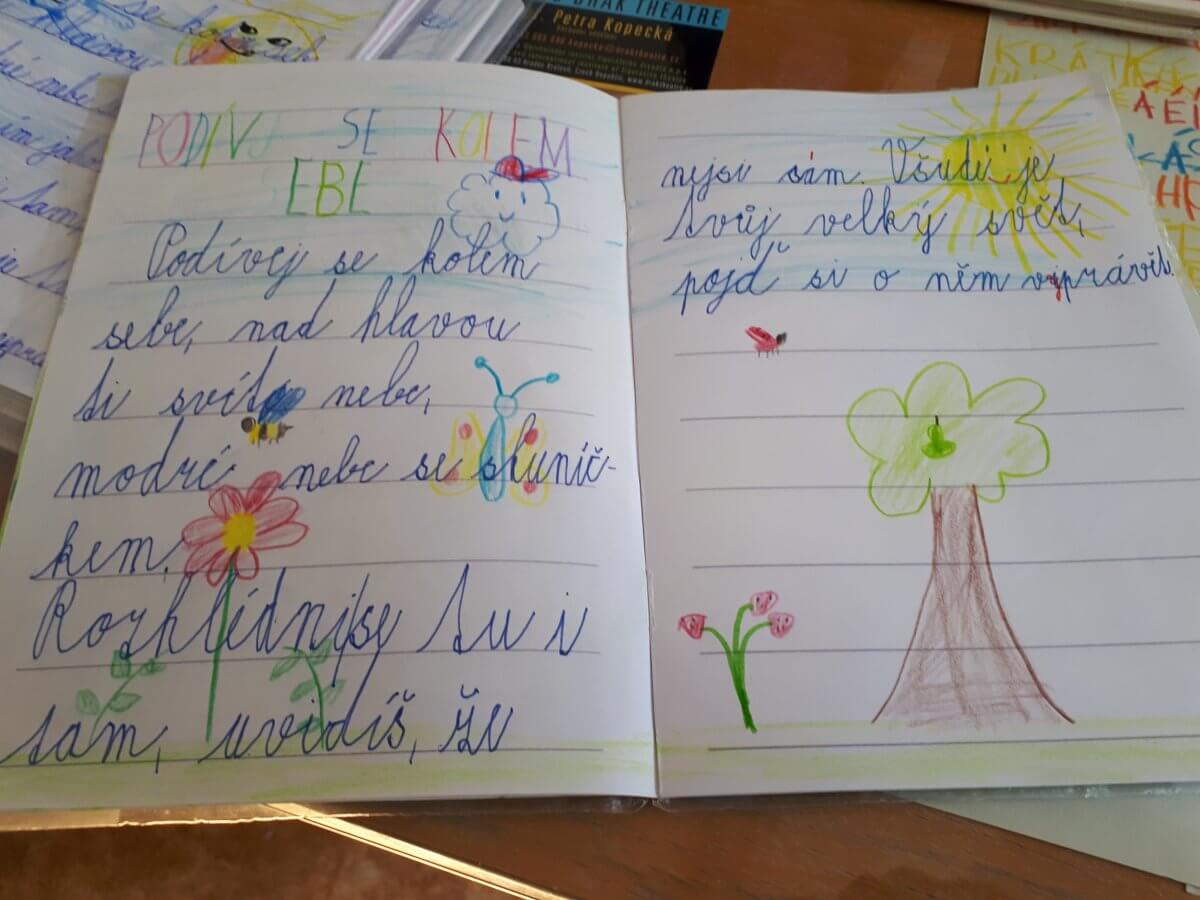 DRAK THEATRE
Petra Kopecká
PODÍVJ SE KOLEM
EBE
Podívej se kolem
sebe, nad hlavou
ti svítá nebe,
modré nebe se sluníč-
kem.
Rozhlédni se tu i
tam, uvidíš, že
nejsi sám. Všude je
tvůj velký svět,
pojď si o něm vyprávět.